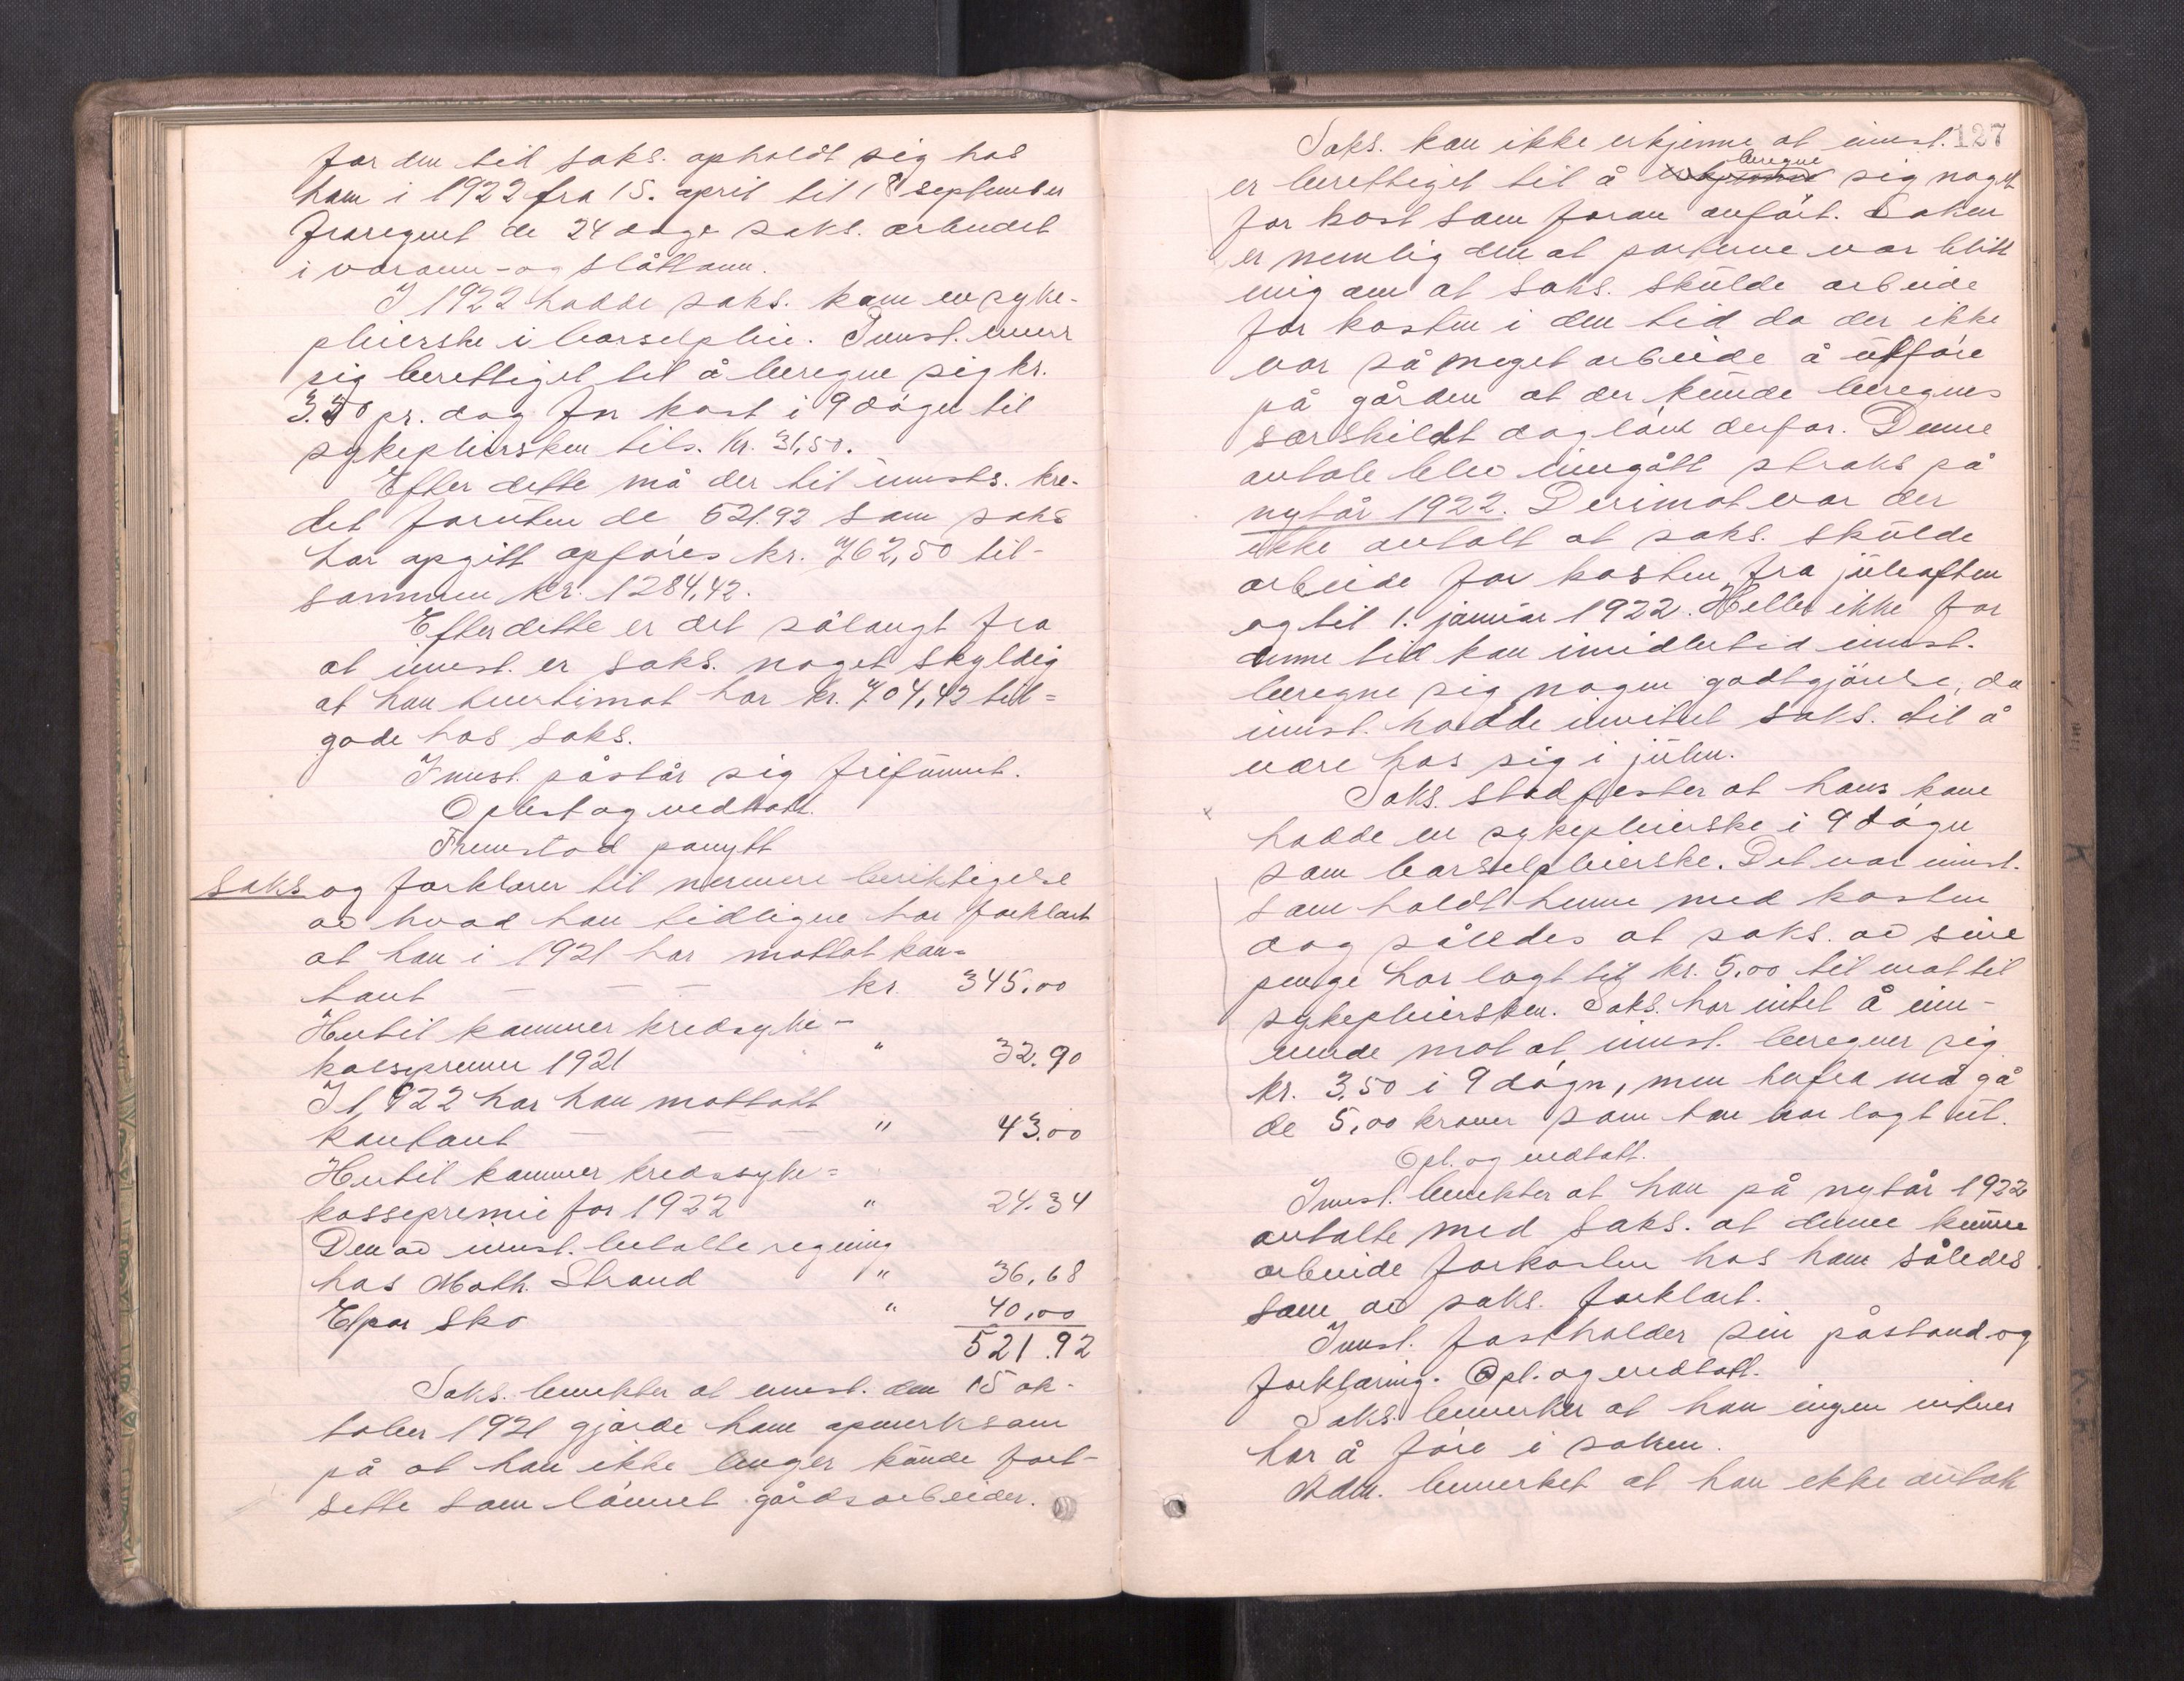 for den tid saks. opholdt sig hos
ham i 1922 fra 15. april til 18 september
fraregnet de 24 dage saks. arbeidet
i våronn- og slåttonn.
I 1922 hadde saks. kone en syke-
pleierske i barselpleie. Innst. mener
sig berettiget til å beregne sig kr.
3.50 pr. dag for kost i 9 døgn til
sykepleiersken tils. kr. 31,50.
Efter dette må der til innsts. kre-
dit foruten de 521.92 som saks
har opgitt opføres kr. 762,50 til-
sammen kr. 1284,42.
Efter dette er det sålangt fra
at innst. er saks. noget skyldig
at han tvertimot har kr. 704,42 til=
gode hos saks.
Innst. påstår sig frifunnet.
Oplest og vedtatt.
Fremstod panytt
saks. og forklarer til nermere beriktigelse
av hvad han tidligere har forklart
at han i 1921 har mottat kon=
tant — — — kr. 345.00
Hertil kommer kredssyke-
kassepremie 1921 " 32.90
I 1922 har han mottatt
kontant — — — " 43.00
Hertil kommer kredssyke=
kassepremie for 1922 " 24.34
Den av innst. betalte regning
hos Math. Strand " 36,68
Et par sko " 40,00
521.92
Saks. bemerker at innst. den 15 ok-
tober 1921 gjorde ham opmerksom
på at han ikke lenger kunde fort-
sette som lønnet gårdsarbeider.
127
Saks. kan ikke erkjenne at innst.
er berettiget til å beregne sig noget
for kost som foran anført. Saken
er nemlig den at parterne var blitt
enig om at saks. skulde arbeide
for kosten i den tid da der ikke
var så meget arbeide å utføre
på gården at der kunde beregnes
særskildt dagløn derfor. Denne
avtale blev inngått straks på
nytår 1922. Derimot var der
ikke avtalt at saks. skulde
arbeide for kosten fra juleaften
og til 1. januar 1922. Heller ikke for
denne tid kan imidlertid innst.
beregne sig nogen godtgjørelse, da
innst. hadde invitert saks. til å
være hos sig i julen.
Saks. stadfester at hans kone
hadde en sykepleierske i 9 døgn
som barselpleierske. Det var innst.
som holdt henne med kosten
dog således at saks. av sine
penge har lagt til kr. 5,00 til mat til
sykepleiersken. Saks. har intet å inn-
vende mot at innst. beregner sig
kr. 3,50 i 9 døgn, men herfra må gå
de 5,00 kroner som han har lagt ut.
Opl. og vedtatt.
Innst. bemerker at han på nytår 1922
avtalte med saks. at denne kunne
arbeide for kosten hos ham således
som av saks. forklart.
Innst. fastholder sin påstand og
forklaring. Opl. og vedtatt.
Saks. bemerker at han ingen vitner
har å føre i saken.
Adm. bemerket at han ikke antok